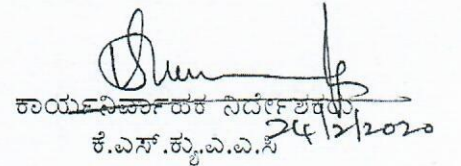 ಕಾರ್ಯನಿರ್ವಾಹಕ ನಿರ್ದೇಶಕರು
ಕೆ.ಎಸ್.ಕ್ಯು.ಎ.ಎ.ಸಿ 24/2/2020